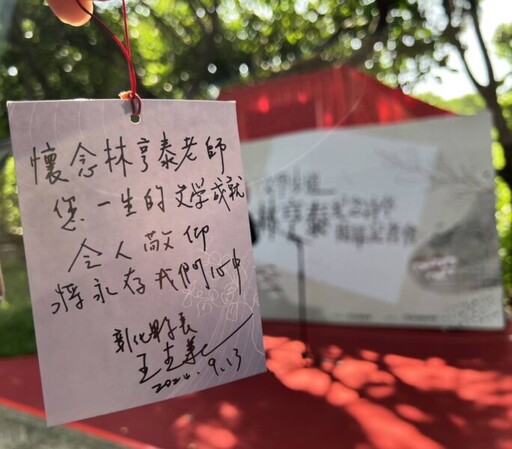 懷念林亨泰老師
您一生的文学成就
令人敬仰
將永存我們心中
彰化縣長
王惠美
2024. 9.13
林亨泰紀念詩碑